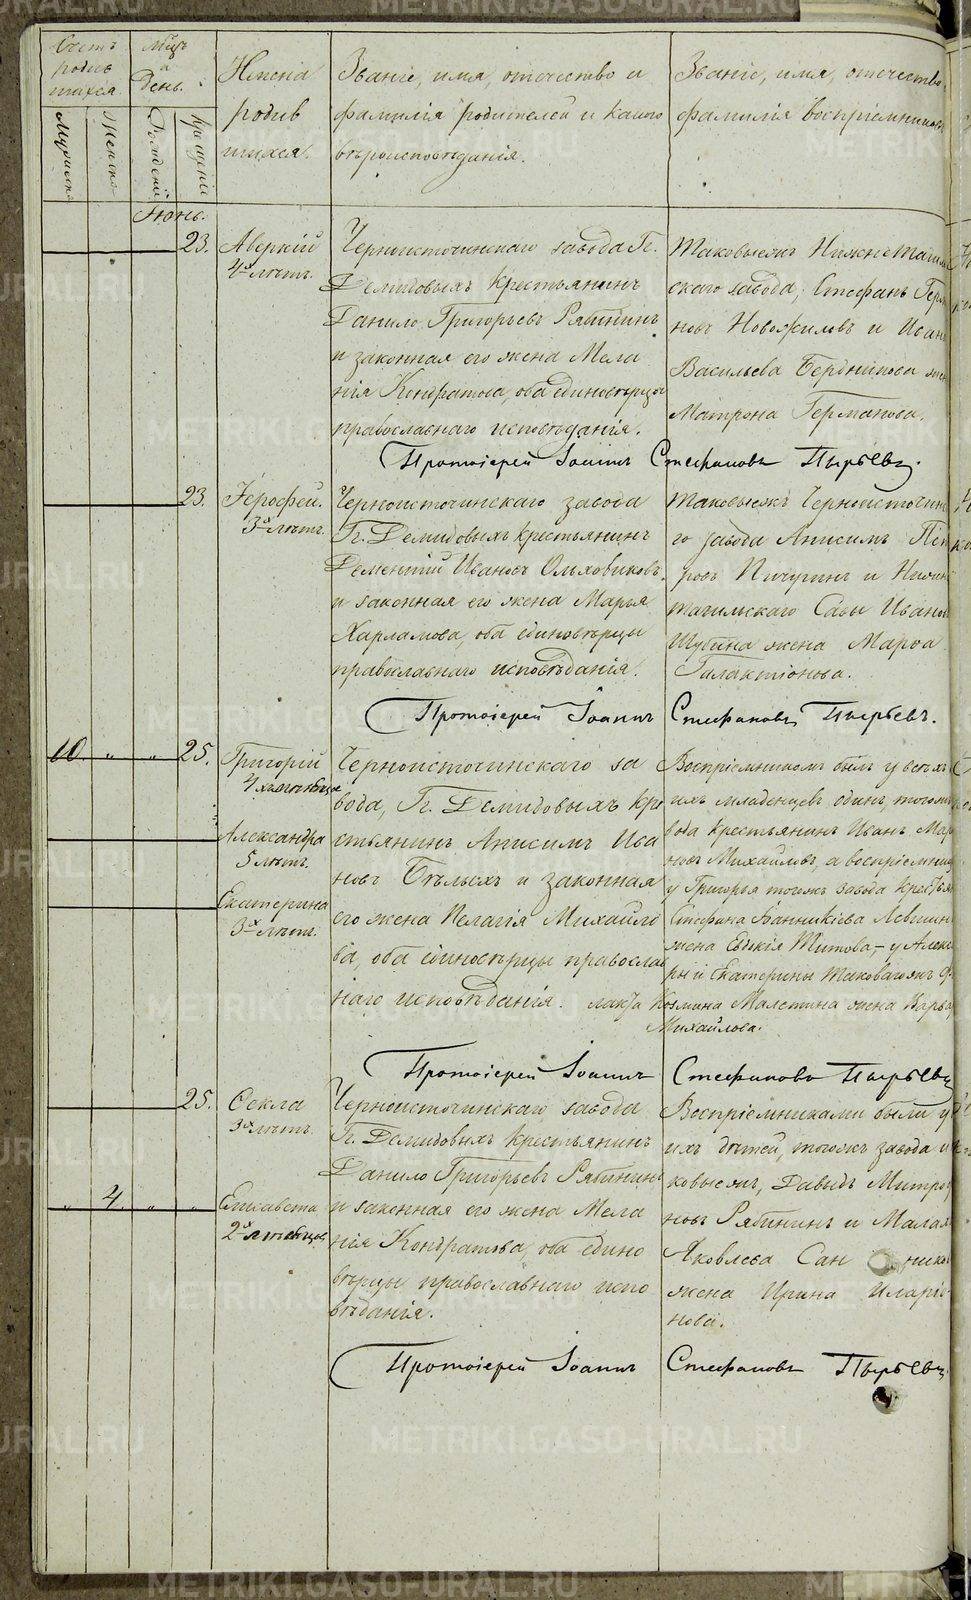 Счетъ родив шихся
Мѣць и День.
Имена родив шихся.
Званіе, имя, отечество и
фамилія родителей и какого
вѣроисповѣданія.
Званіе, имя, отечество,
фамилія воспріемниковъ
Мужеска
Женска
Рожденія
Крещенія
Іюнь.
23.
Аверкій
4хъ лѣтъ.
Черноисточинскаго завода Гг.
Демидовыхъ Крестьянинъ
Данило Григорьевъ Рябининъ
и законная его жена Мела
нія Кондратова, оба единовѣрцы
православнаго исповѣданія.
таковыежъ Нижнетагил
скаго завода, Стефанъ Герм
новъ Новожиловъ и Иван
Васильева Бердникова жен
Матрона Германова.
Протоіерей Іоаннъ Стефановъ Пырьевъ.
23.
Іерофей.
3хъ лѣтъ.
Черноисточинскаго завода
Гг. Демидовыхъ крестьянинъ
Дементій Ивановъ Ольховиковъ,
и законная его жена Марья
Харламова, оба единовѣрцы
православнаго исповѣданія.
таковыежъ Черноисточин
го завода Анисимъ Пет
ровъ Пичугинъ и Нижне
тагильскаго Савы Иванов
Шубина жена Марѳа
Галактіонова.
Протоіерей Іоаннъ Стефановъ Пырьевъ.
10. " " 25.
Григорій
Александра
5 лѣтъ.
Екатерина
3хъ лѣтъ.
Черноисточинскаго за
вода, Гг. Демидовыхъ кре
стьянинъ Анисимъ Ива
новъ Бѣлыхъ и законная
его жена Пелагія Михайло
ва, оба единовѣрцы православ
наго исповѣданія.
Воспріемникомъ былъ у всѣхъ
ихъ младенцевъ одинъ, тогожъ
вода крестьянинъ Иванъ Мар
новъ Михайловъ, а воспріемниц
у Григорья тогожъ завода крестьян
Стефана Банникова Левшин
жена Евдокія Титова,- у Алекс
ры и Екатерины таковагожъ
Козмина Малетина жена Варва
Михайлова.
Протоіерей Іоаннъ Стефановъ Пырьевъ
25.
Ѳекла
3хъ лѣтъ.
" 4. " "
Елисавета
2хъ мѣсяцовъ
Черноисточинскаго завода
Гг. Демидовыхъ крестьянинъ
Данило Григорьевъ Рябининъ
и законная его жена Мела
нія Кондратова, оба едино
вѣрцы православнаго испо
вѣданія.
Воспріемниками были у
ихъ дѣтей, тогожъ завода
ковыежъ, Давыдъ Митро
новъ Рябининъ и Малах
Яковлева Сан никова
жена Ирина Иларіо
нова.
Протоіерей Іоаннъ Стефановъ Пырьевъ.
METRIKI.GASO-URAL.RU